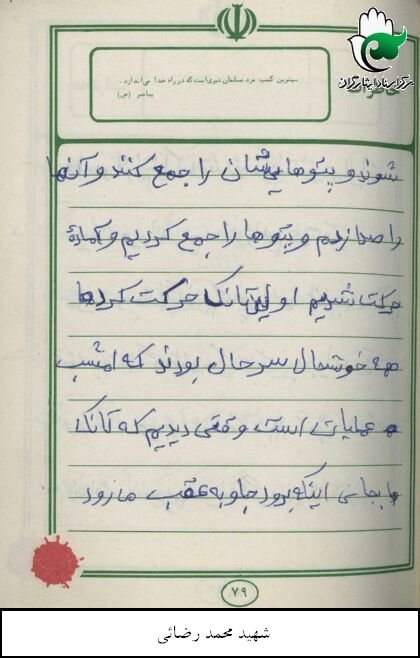 مرکز اسناد ایثارگران
خاطرات
بهترین کسب مرد مسلمان تیری است که در راه خدا می‌اندازد.
پیامبر (ص)
شوند و پتوهایشان را جمع کنند و آنها
را صدا زدم و پتوها را جمع کردیم و آماده
حرکت شدیم اولین تانک حرکت کرد ما
همه خوشحال سرحال بودند که امشب
عملیات است وقتی دیدیم که تانک
بجای اینکه برود جلو به عقب ما رود
۷۹
شهید محمد رضائی